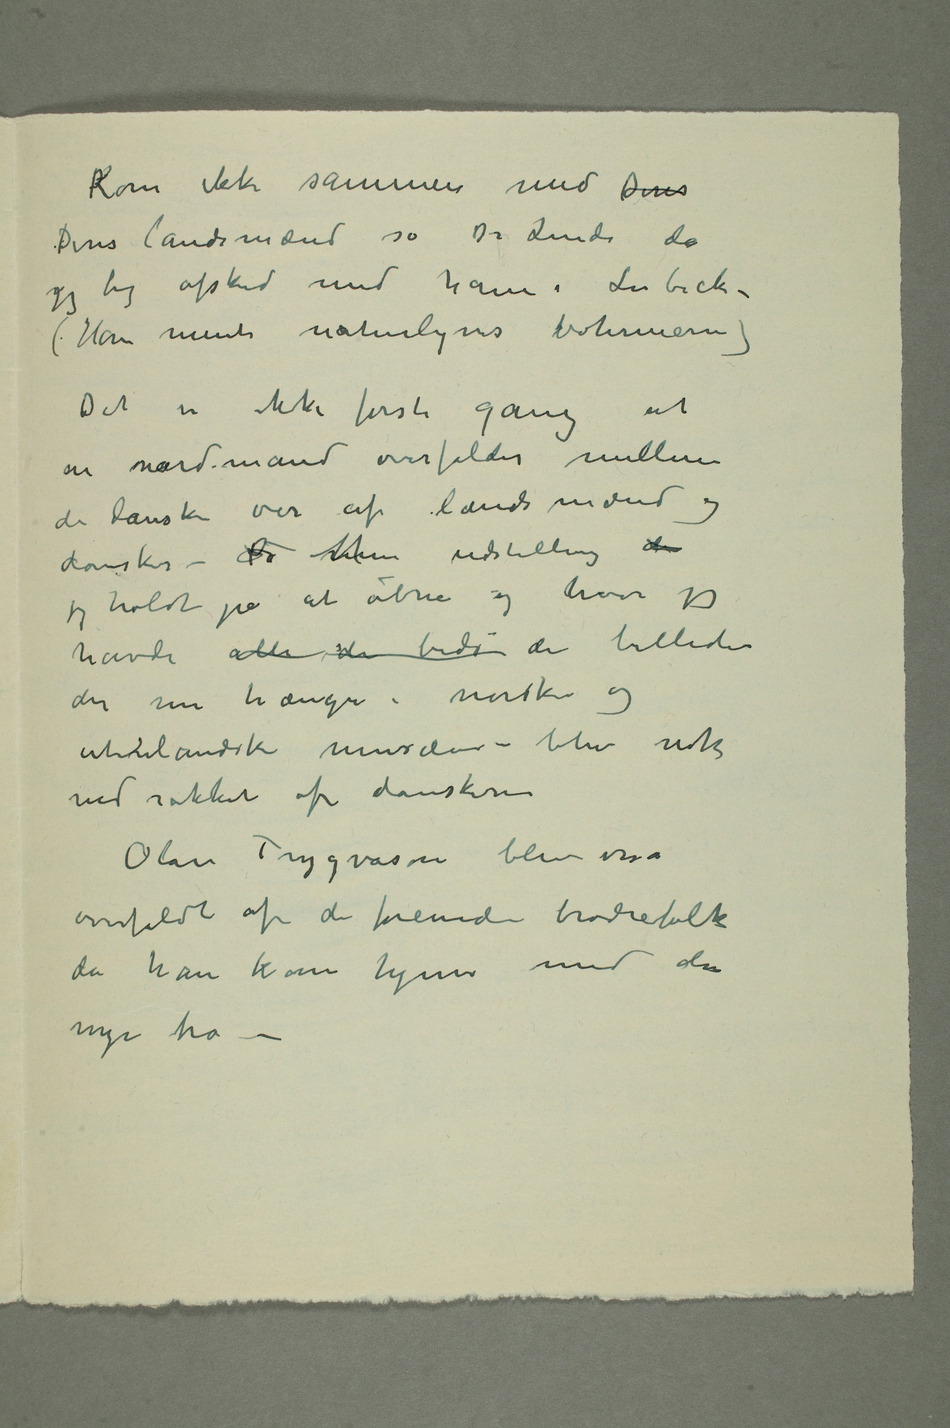 Kom ikke sammen med Deres
Deres landsmænd sa Dr Linde da
jeg tog afsked med ham i Lübeck –
(Han mente naturligvis bohemern)
Det er ikke første gang at
en nordmand overfaldes mellem
de danske øer af landsmænd og
dansker – udstilling de
jeg holdt på at åbne og hvor jeg
havde alle de beds de billeder
der nu hænger i norske og
utenlandske museum – blev nok
ned rakket af danskerne
Olav Trygvason blev også
overfaldt af de forenede brodrefolk
da han kom hjem med den
nye tro –